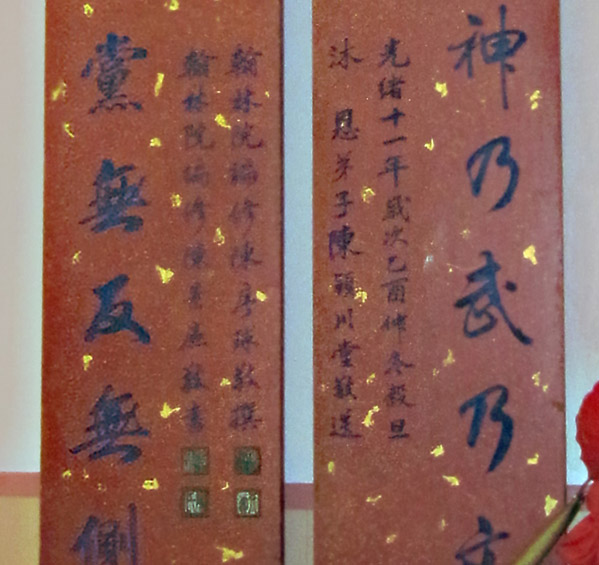 神乃武乃文
光緒十一年歲次乙酉仲冬穀旦
沐恩弟子陳穎川堂敬送
翰林院編修陳序球敬撰
翰林院編修陳敬書
黨無反無側